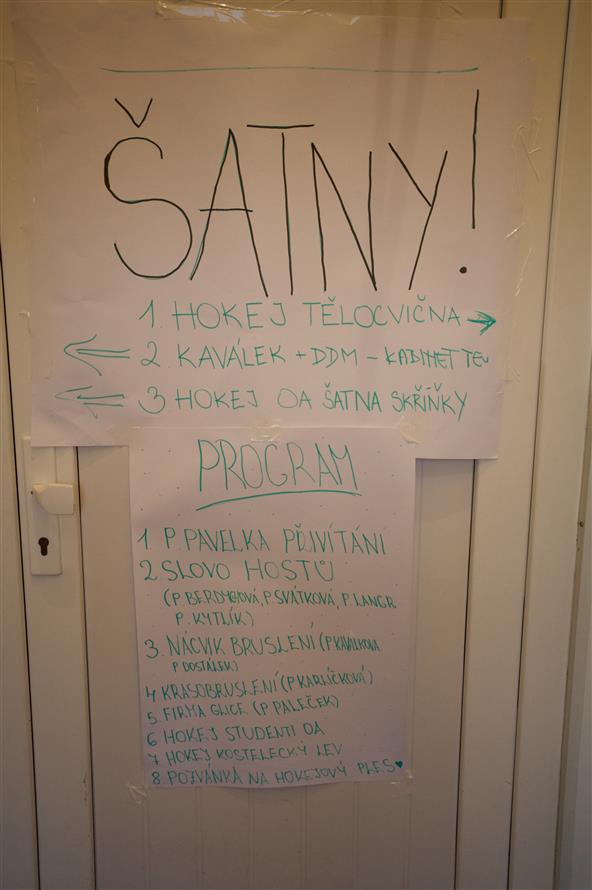 ŠATNY!
1. HOKEJ TĚLOCVIČNA →
← 2. KAVÁLEK + DDM – KABINET TEV
← 3 HOKEJ OA ŠATNA SKŘÍŇKY
PROGRAM
1. P. PAVELKA PŘIVÍTÁNÍ
2 SLOVO HOSTŮ
(P. BERDYCHOVÁ, P. SVÁTKOVÁ, P. LANGR
P. KYTLÍK)
3. NÁCVIK BRUSLENÍ (P KAVÁLKOVÁ
P DOSTÁLEK)
4 KRASOBRUSLENÍ (P KARLÍČKOVÁ)
5. FIRMA GLICE (P PALEČEK)
6 HOKEJ STUDENTI OA
7 HOKEJ KOSTELECKÝ LEV
8. POZVÁNKA NA HOKEJOVÝ PLES ♥